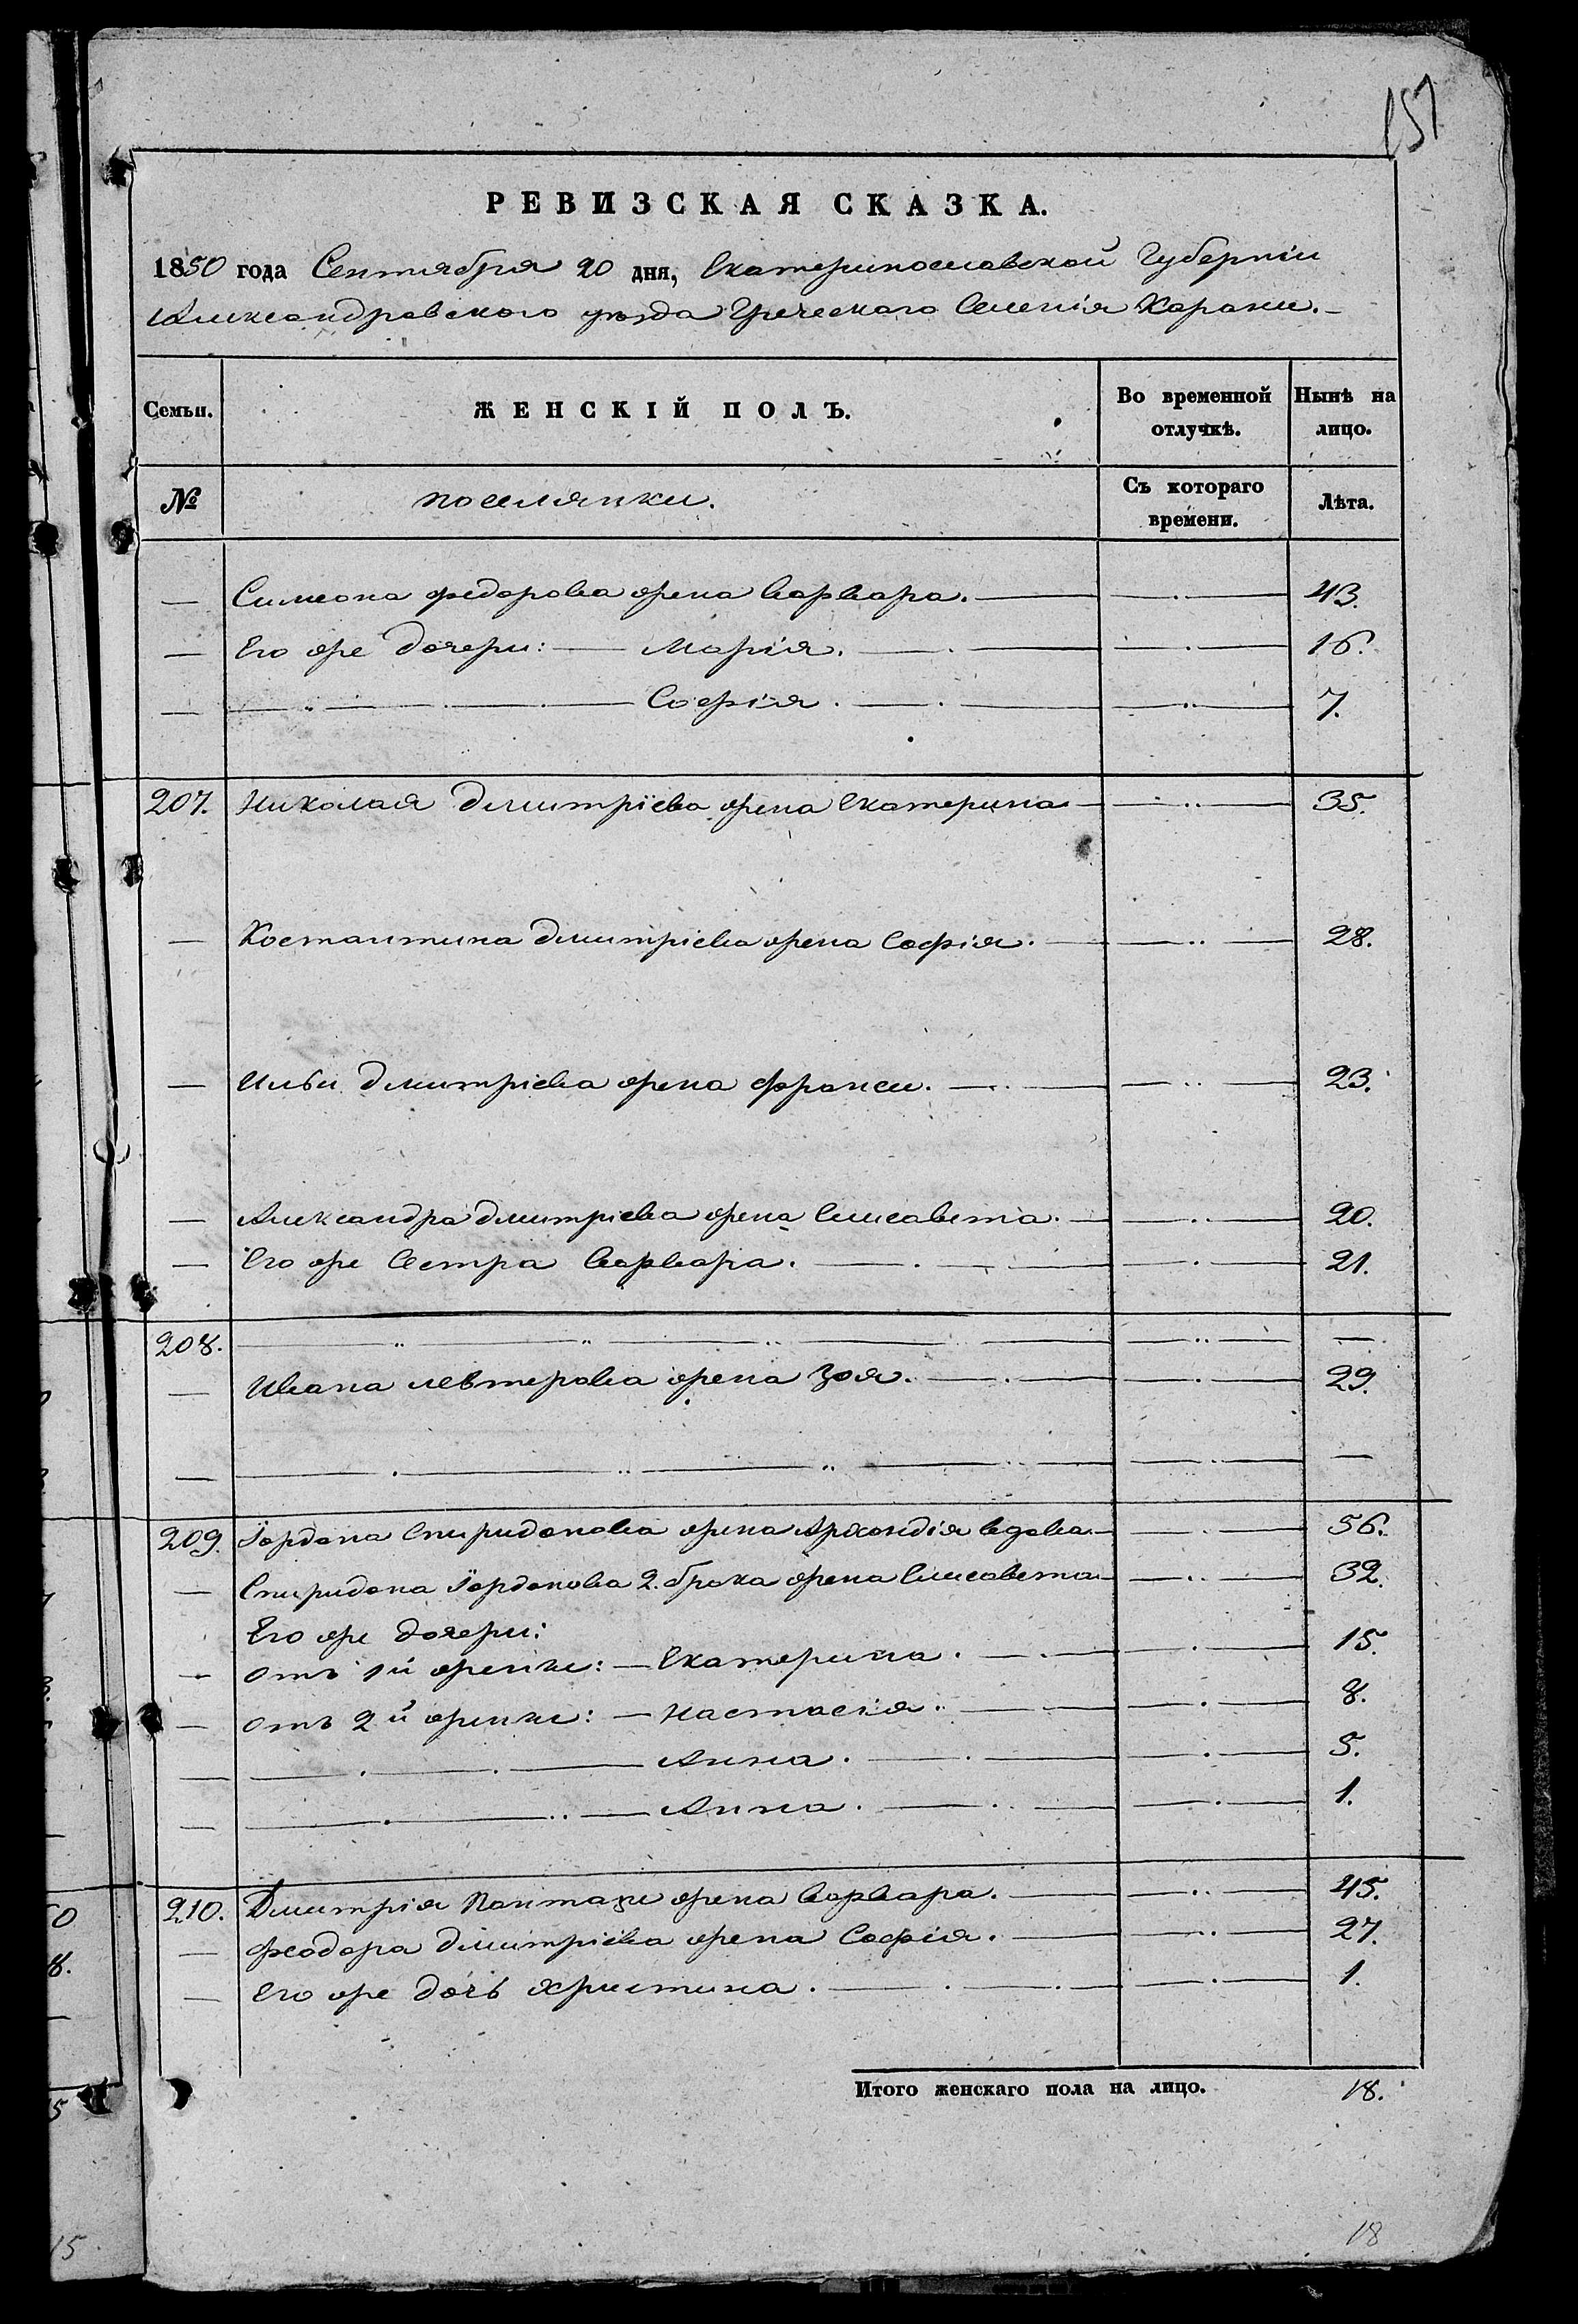 157
РЕВИЗСКАЯ СКАЗКА.
1850 года Сентября 20 дня, Екатеринославской Губерніи
Александровского уѣзда Греческого Селенія Караки.
Семьи. ЖЕНСКІЙ ПОЛЪ. Во временной отлучкѣ. Нынѣ на лицо.
№ поселянки. Съ котораго времени. Лѣта.
— Симеона Федорова жена Варвара. — 43.
— Его же дочери: — Марія. — 16.
— Софія. — 7.
207. Николая Дмитріева жена Екатерина — 35.
— Костантина Дмитріева жена Софія. — 28.
— Ильи Дмитріева жена Франси. — 23.
— Александра Дмитріева жена Елисавета. — 20.
— Его же Сестра Варвара. — 21.
208. — —
— Ивана Левтерова жена Зоя. — 29.
— — —
209. Іордана Спиридонова жена Архондія вдова — 56.
— Спиридона Іорданова 2. брака жена Елисавета — 32.
Его же дочери:
— отъ 1й женки: — Екатерина. — 15.
— отъ 2й женки: — Настасія. — 8.
— Анна. — 5.
— Анна. — 1.
210. Дмитрія Пантази жена Варвара. — 45.
— Феодора Дмитріева жена Софія. — 27.
— Его же дочь Христина. — 1.
Итого женскаго пола на лицо. 18.
18